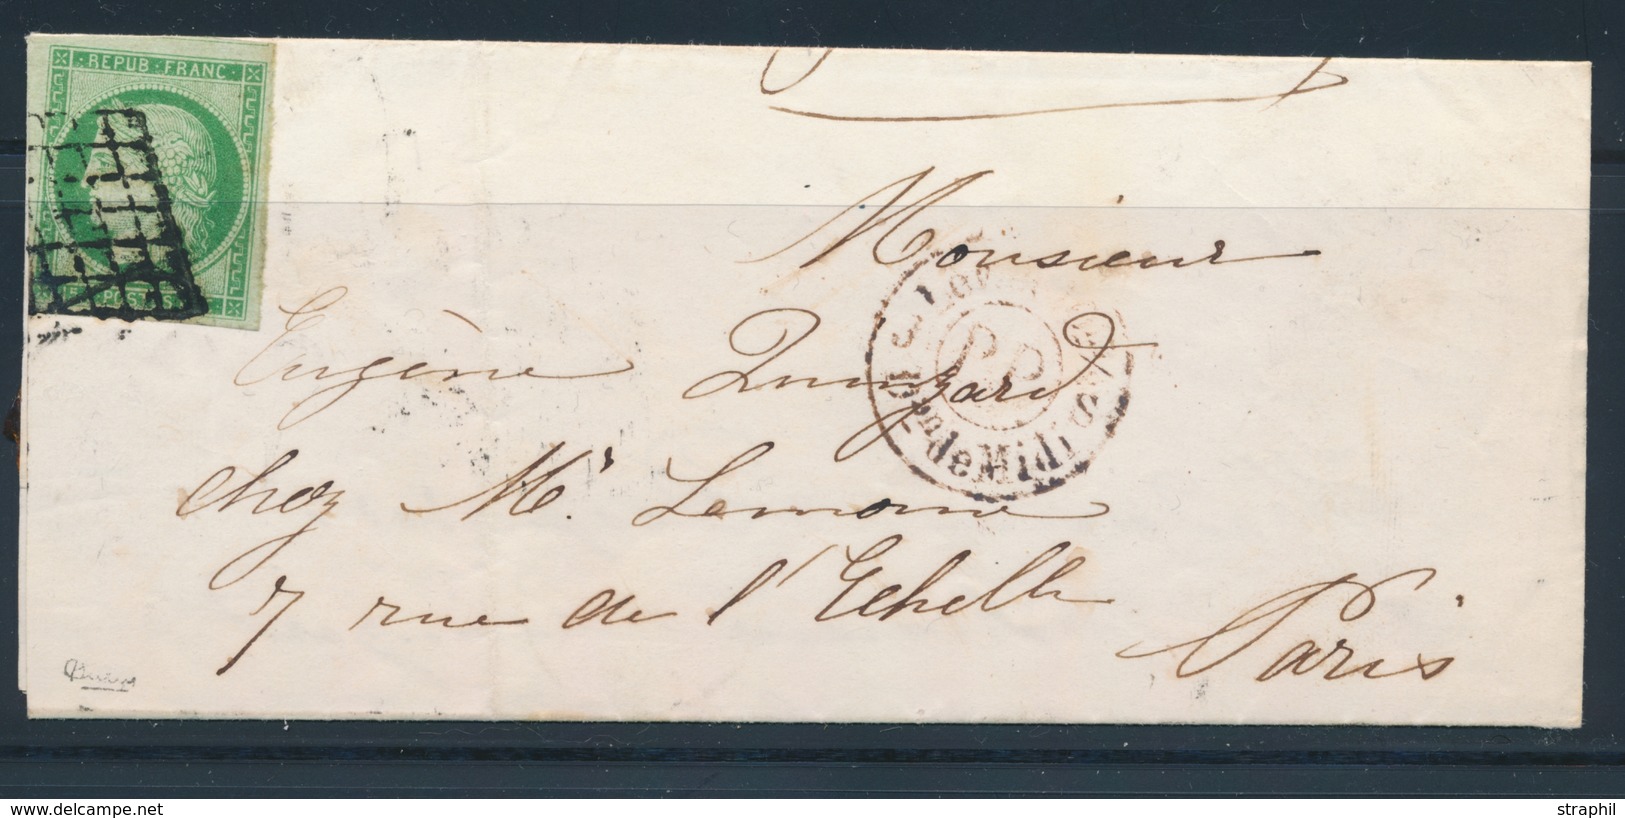 REPUB·FRANC·
POSTES
Monsieur
Eugène
PP
de Midi
chez Mr. Lemoine
7 rue de l'Echelle
Paris
www.delcampe.net
straphil